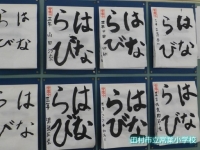 はな
らび
はな
らび
はな
らび
はな
らび
はな
らび
はな
らび
はな
らび
はな
らび
田村市立常葉小学校